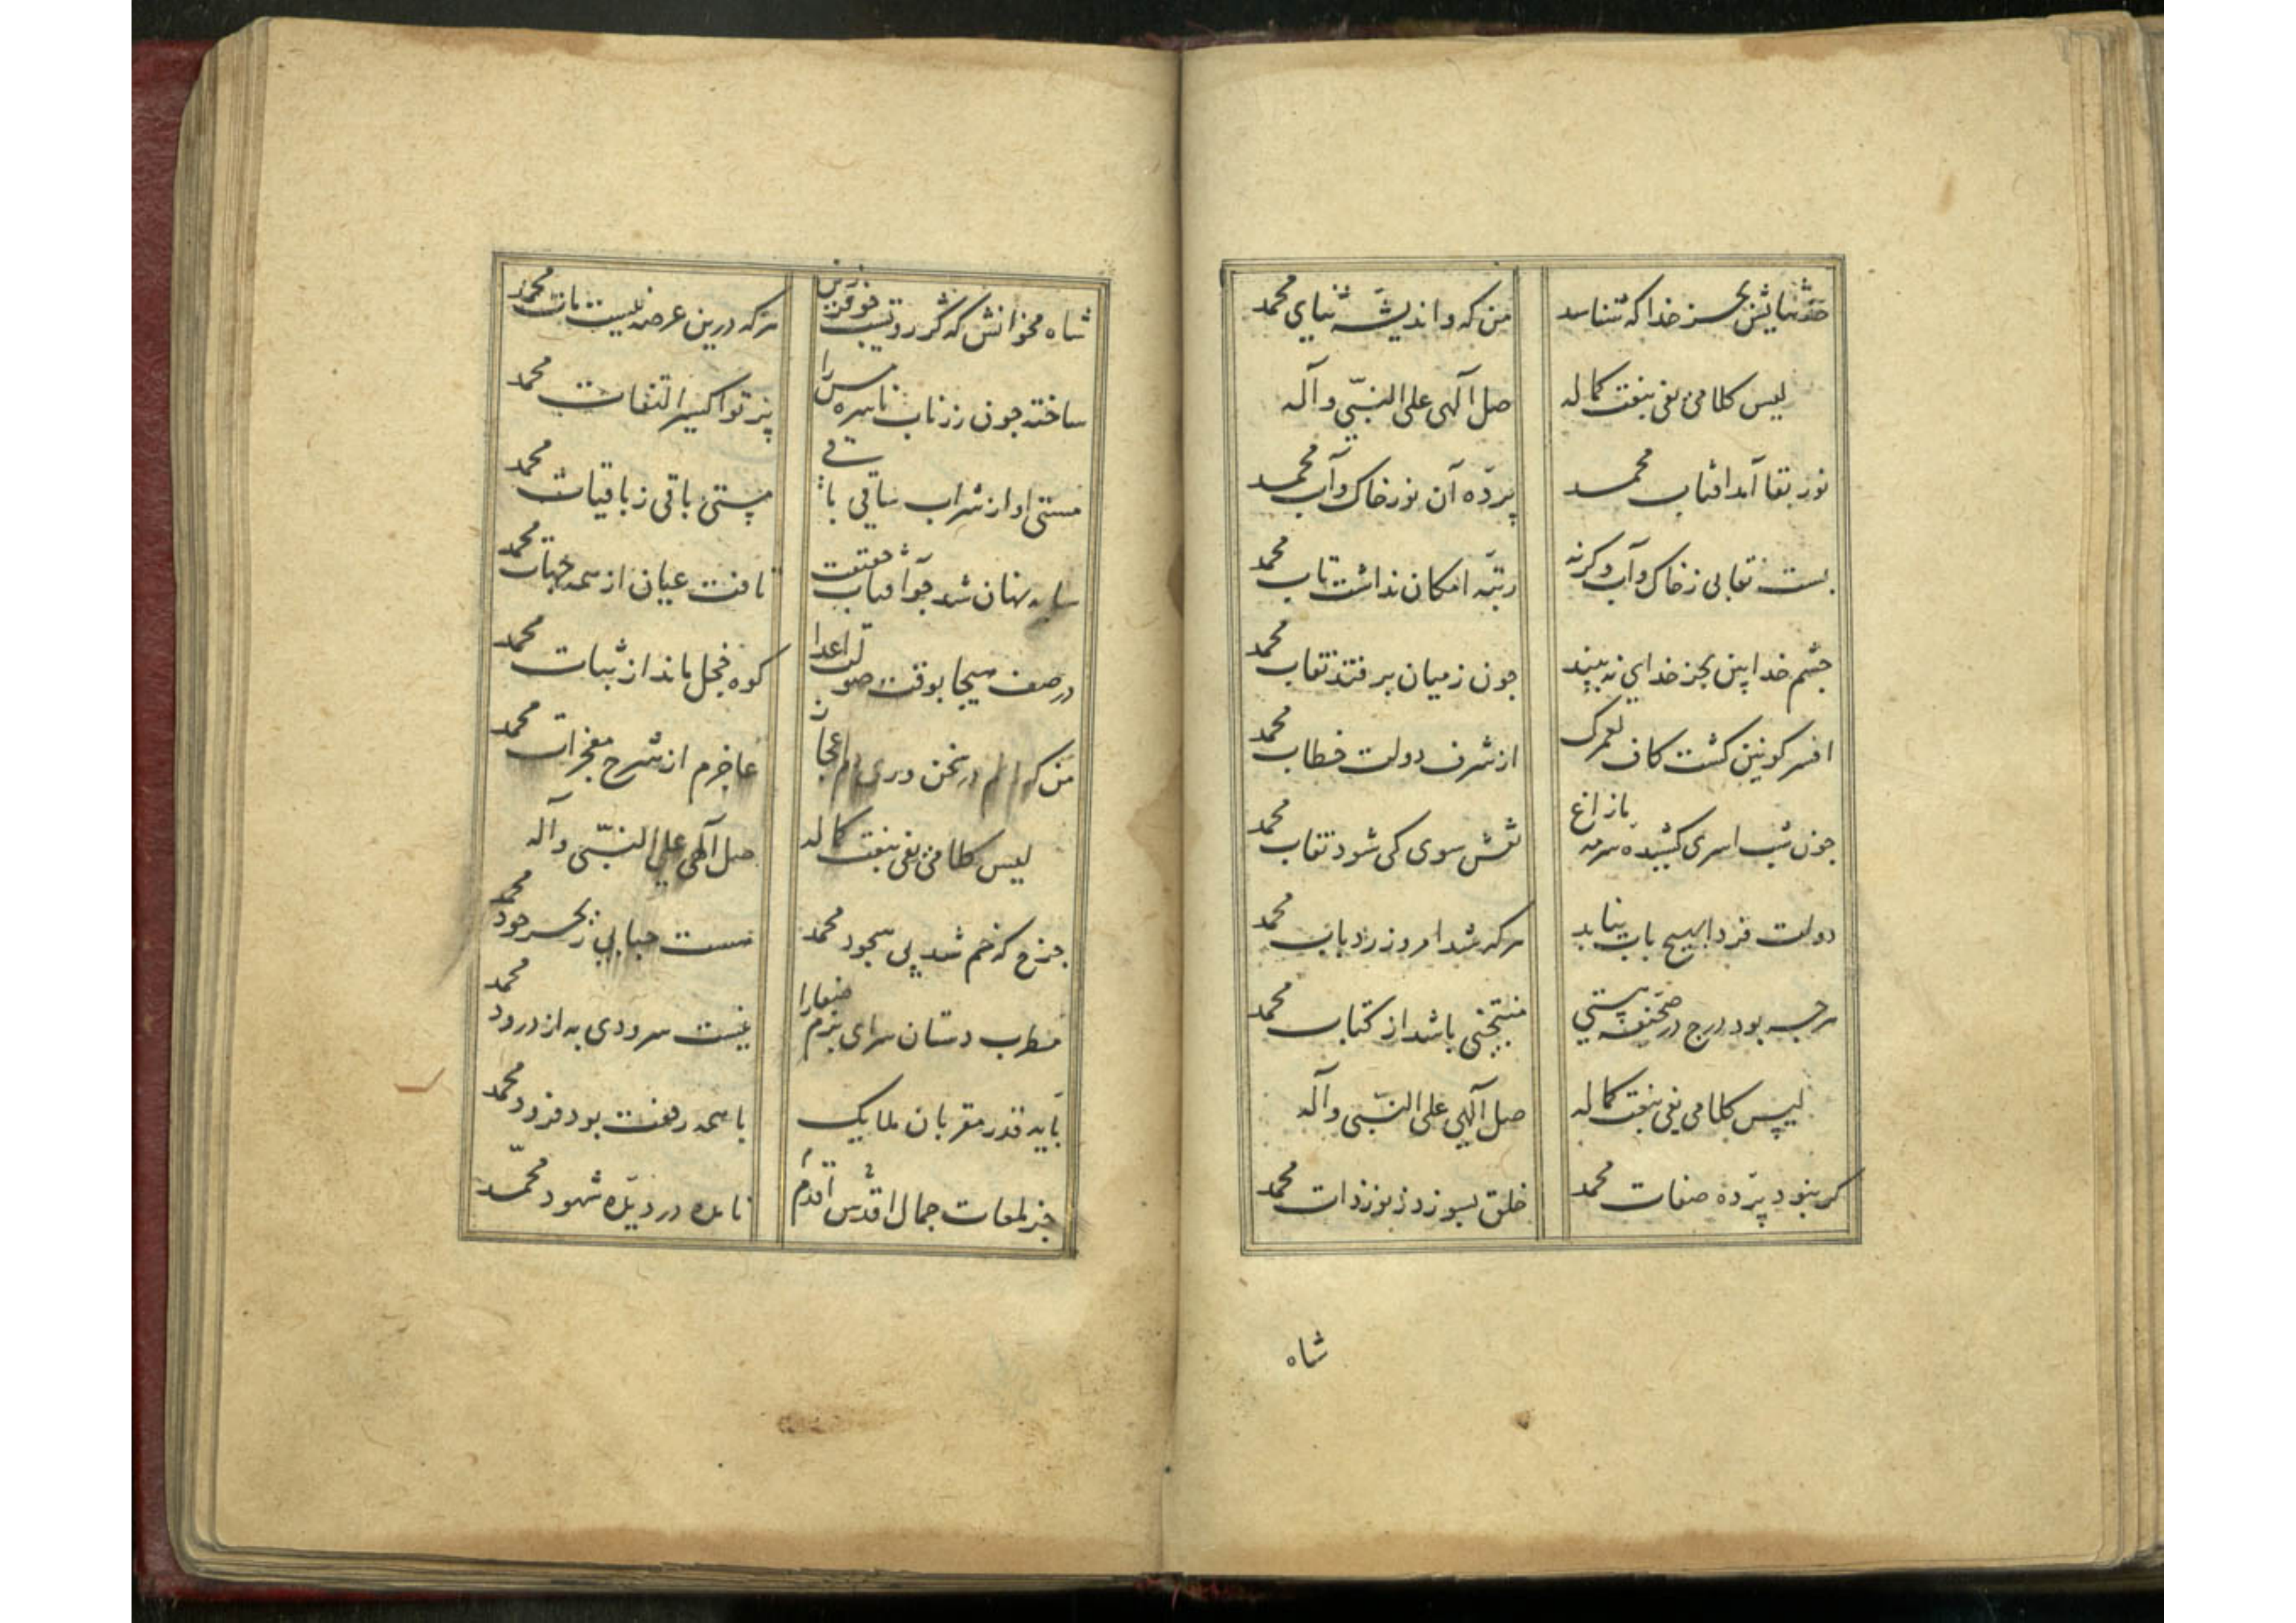 حد ثنایش بجز خدا که شناسد
من که و اندیشه ثنای محمد
لیس کلامی یفی بنعت کماله
صل الهی علی النبی و آله
نور بقا آمد افتاب محمد
پرده آن نور خاک و آب محمد
بست نقابی ز خاک و آب وکرنه
رتبه امکان نداشت تاب محمد
چشم خدا بین بجز خدای نه بیند
چون ز میان برفتد نقاب محمد
افسر کونین کشت کاف لعمرک
از شرف دولت خطاب محمد
چون شب اسری کشیده سرمه مازاغ
سوی کی شود نقاب محمد
دولت فردا بهیچ باب نیابد
هرکه شد امروز رد باب محمد
هرچه بود درج در صحیفه هستی
منتخبی باشد از کتاب محمد
لیس کلامی یفی بنعت کماله
صل الهی علی النبی و آله
کر نبود پرده صفات محمد
خلق بسوزد ز نور ذات محمد
شاه
شاه مخوانش که کر روتبست فرزین
هرکه درین عرصه نیست مات محمد
ساخته چون زر ناب ناسره مس را
پرتو اکسیر التفات محمد
مستی او از شراب ساقی باقی
هستی باقی ز باقیات محمد
سایه نهان شد چو آفتاب حقیقت
تافت عیان از همه جهات محمد
در صف هیجا بوقت صولت اعدا
کوه خجل ماند از ثبات محمد
من که در سخن دم اعجاز
عاجزم از شرح معجزات محمد
لیس کلامی یفی بنعت کماله
صل الهی علی النبی و آله
چرخ که خم شد پی سجود محمد
هست حبابی ز بحر جود محمد
مطرب دستان سرای بزم صفا را
نیست سرودی به از درود محمد
پایه قدر مقربان ملایک
با همه رفعت بود فرود محمد
جز لمعات جمال اقدس اقدم
نامده در دیده شهود محمد